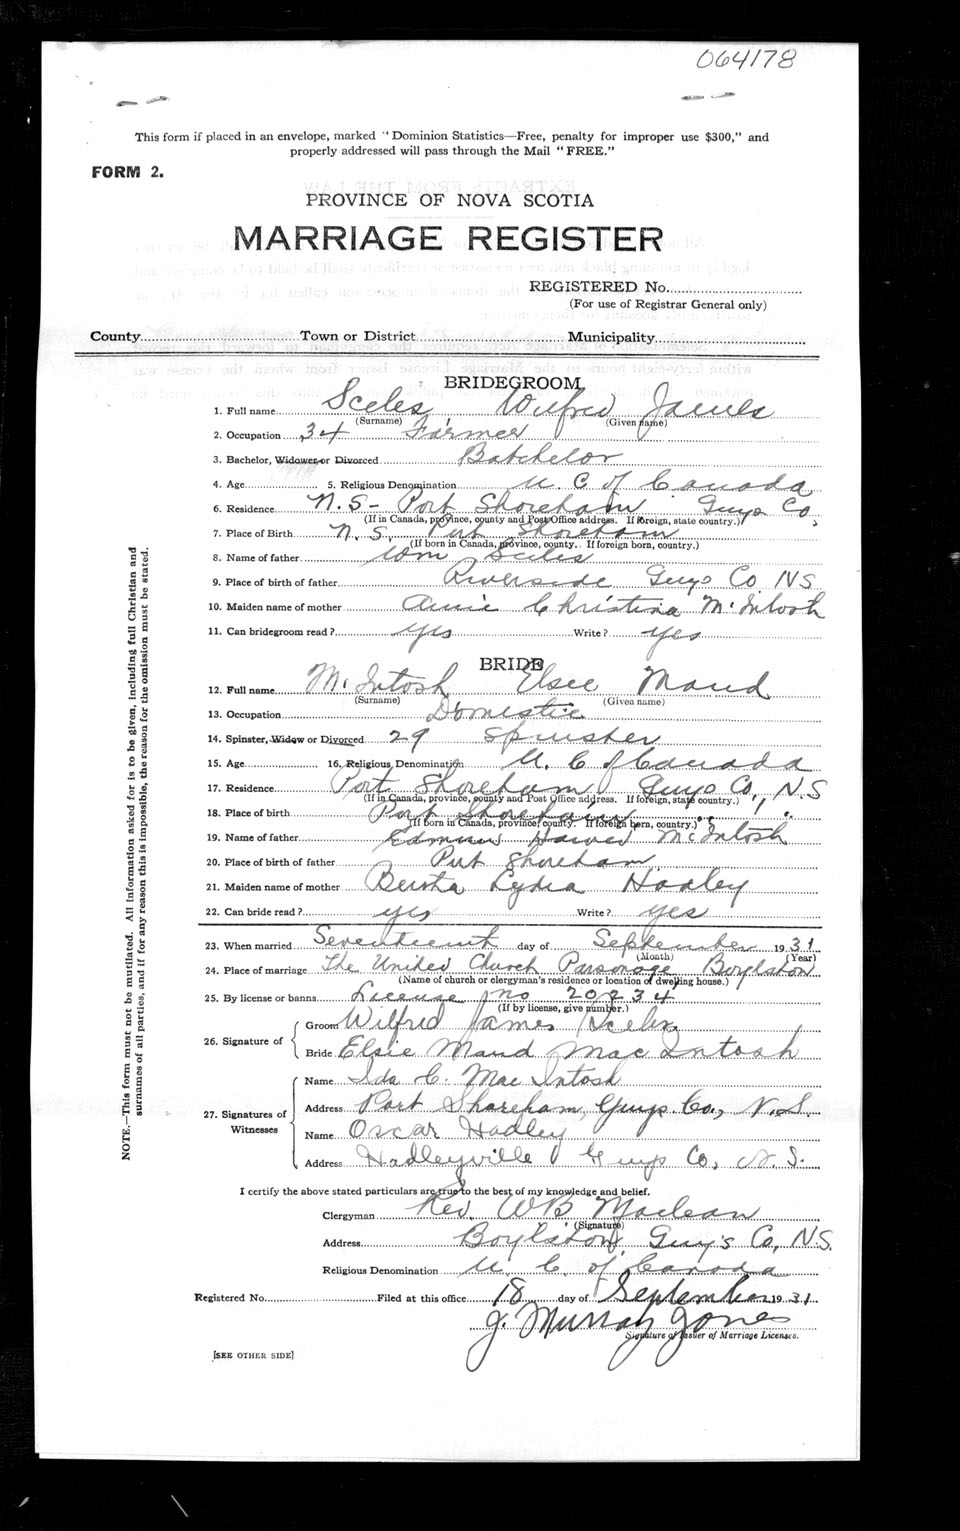 064178
This form if placed in an envelope, marked "Dominion Statistics—Free, penalty for improper use $300," and
properly addressed will pass through the Mail "FREE."
FORM 2.
PROVINCE OF NOVA SCOTIA
MARRIAGE REGISTER
REGISTERED No.
(For use of Registrar General only)
County Town or District Municipality
BRIDEGROOM
1. Full name Sceles Wilfred James
(Surname) (Given name)
2. Occupation 34 Farmer
3. Bachelor, Widower or Divorced Batchelor
4. Age 5. Religious Denomination U. C of Canada
6. Residence N. S - Port Shoreham Guys Co,
(If in Canada, province, county and Post Office address. If foreign, state country.)
7. Place of Birth N. S. Port Shoreham
(If born in Canada, province, county. If foreign born, country.)
8. Name of father Wm Sceles
9. Place of birth of father Riverside Guys Co NS
10. Maiden name of mother Annie Christina McIntosh
11. Can bridegroom read? yes Write? yes
BRIDE
12. Full name McIntosh Elsee Maud
(Surname) (Given name)
13. Occupation Domestic
14. Spinster, Widow or Divorced 29 Spinster
15. Age 16. Religious Denomination U. C of Canada
17. Residence Port Shoreham Guys Co., N.S
(If in Canada, province, county and Post Office address. If foreign, state country.)
18. Place of birth Port Shoreham
(If born in Canada, province, county. If foreign born, country.)
19. Name of father McIntosh
20. Place of birth of father Port Shoreham
21. Maiden name of mother Bertha Lydia Hadley
22. Can bride read? yes Write? yes
23. When married Seventeenth day of September 1931
(Month) (Year)
24. Place of marriage The United Church Parsonage Boylston
(Name of church or clergyman's residence or location of dwelling house.)
25. By license or banns License no 20234
(If by license, give number.)
26. Signature of
Groom Wilfred James Sceles
Bride Elsie Maud MacIntosh
27. Signatures of Witnesses
Name Ida C. MacIntosh
Address Port Shoreham, Guys Co., N.S.
Name Oscar Hadley
Address Hadleyville Guys Co, N. S.
I certify the above stated particulars are true to the best of my knowledge and belief.
Clergyman Rev. W B Maclean
(Signature)
Address Boylston, Guy's Co, N.S.
Religious Denomination U. C. of Canada
Registered No. Filed at this office 18 day of September 1931
J. Murray Jones
Signature of Issuer of Marriage Licenses.
[SEE OTHER SIDE]
NOTE.—This form must not be mutilated. All information asked for is to be given, including full Christian and
surnames of all parties, and if for any reason this is impossible, the reason for the omission must be stated.